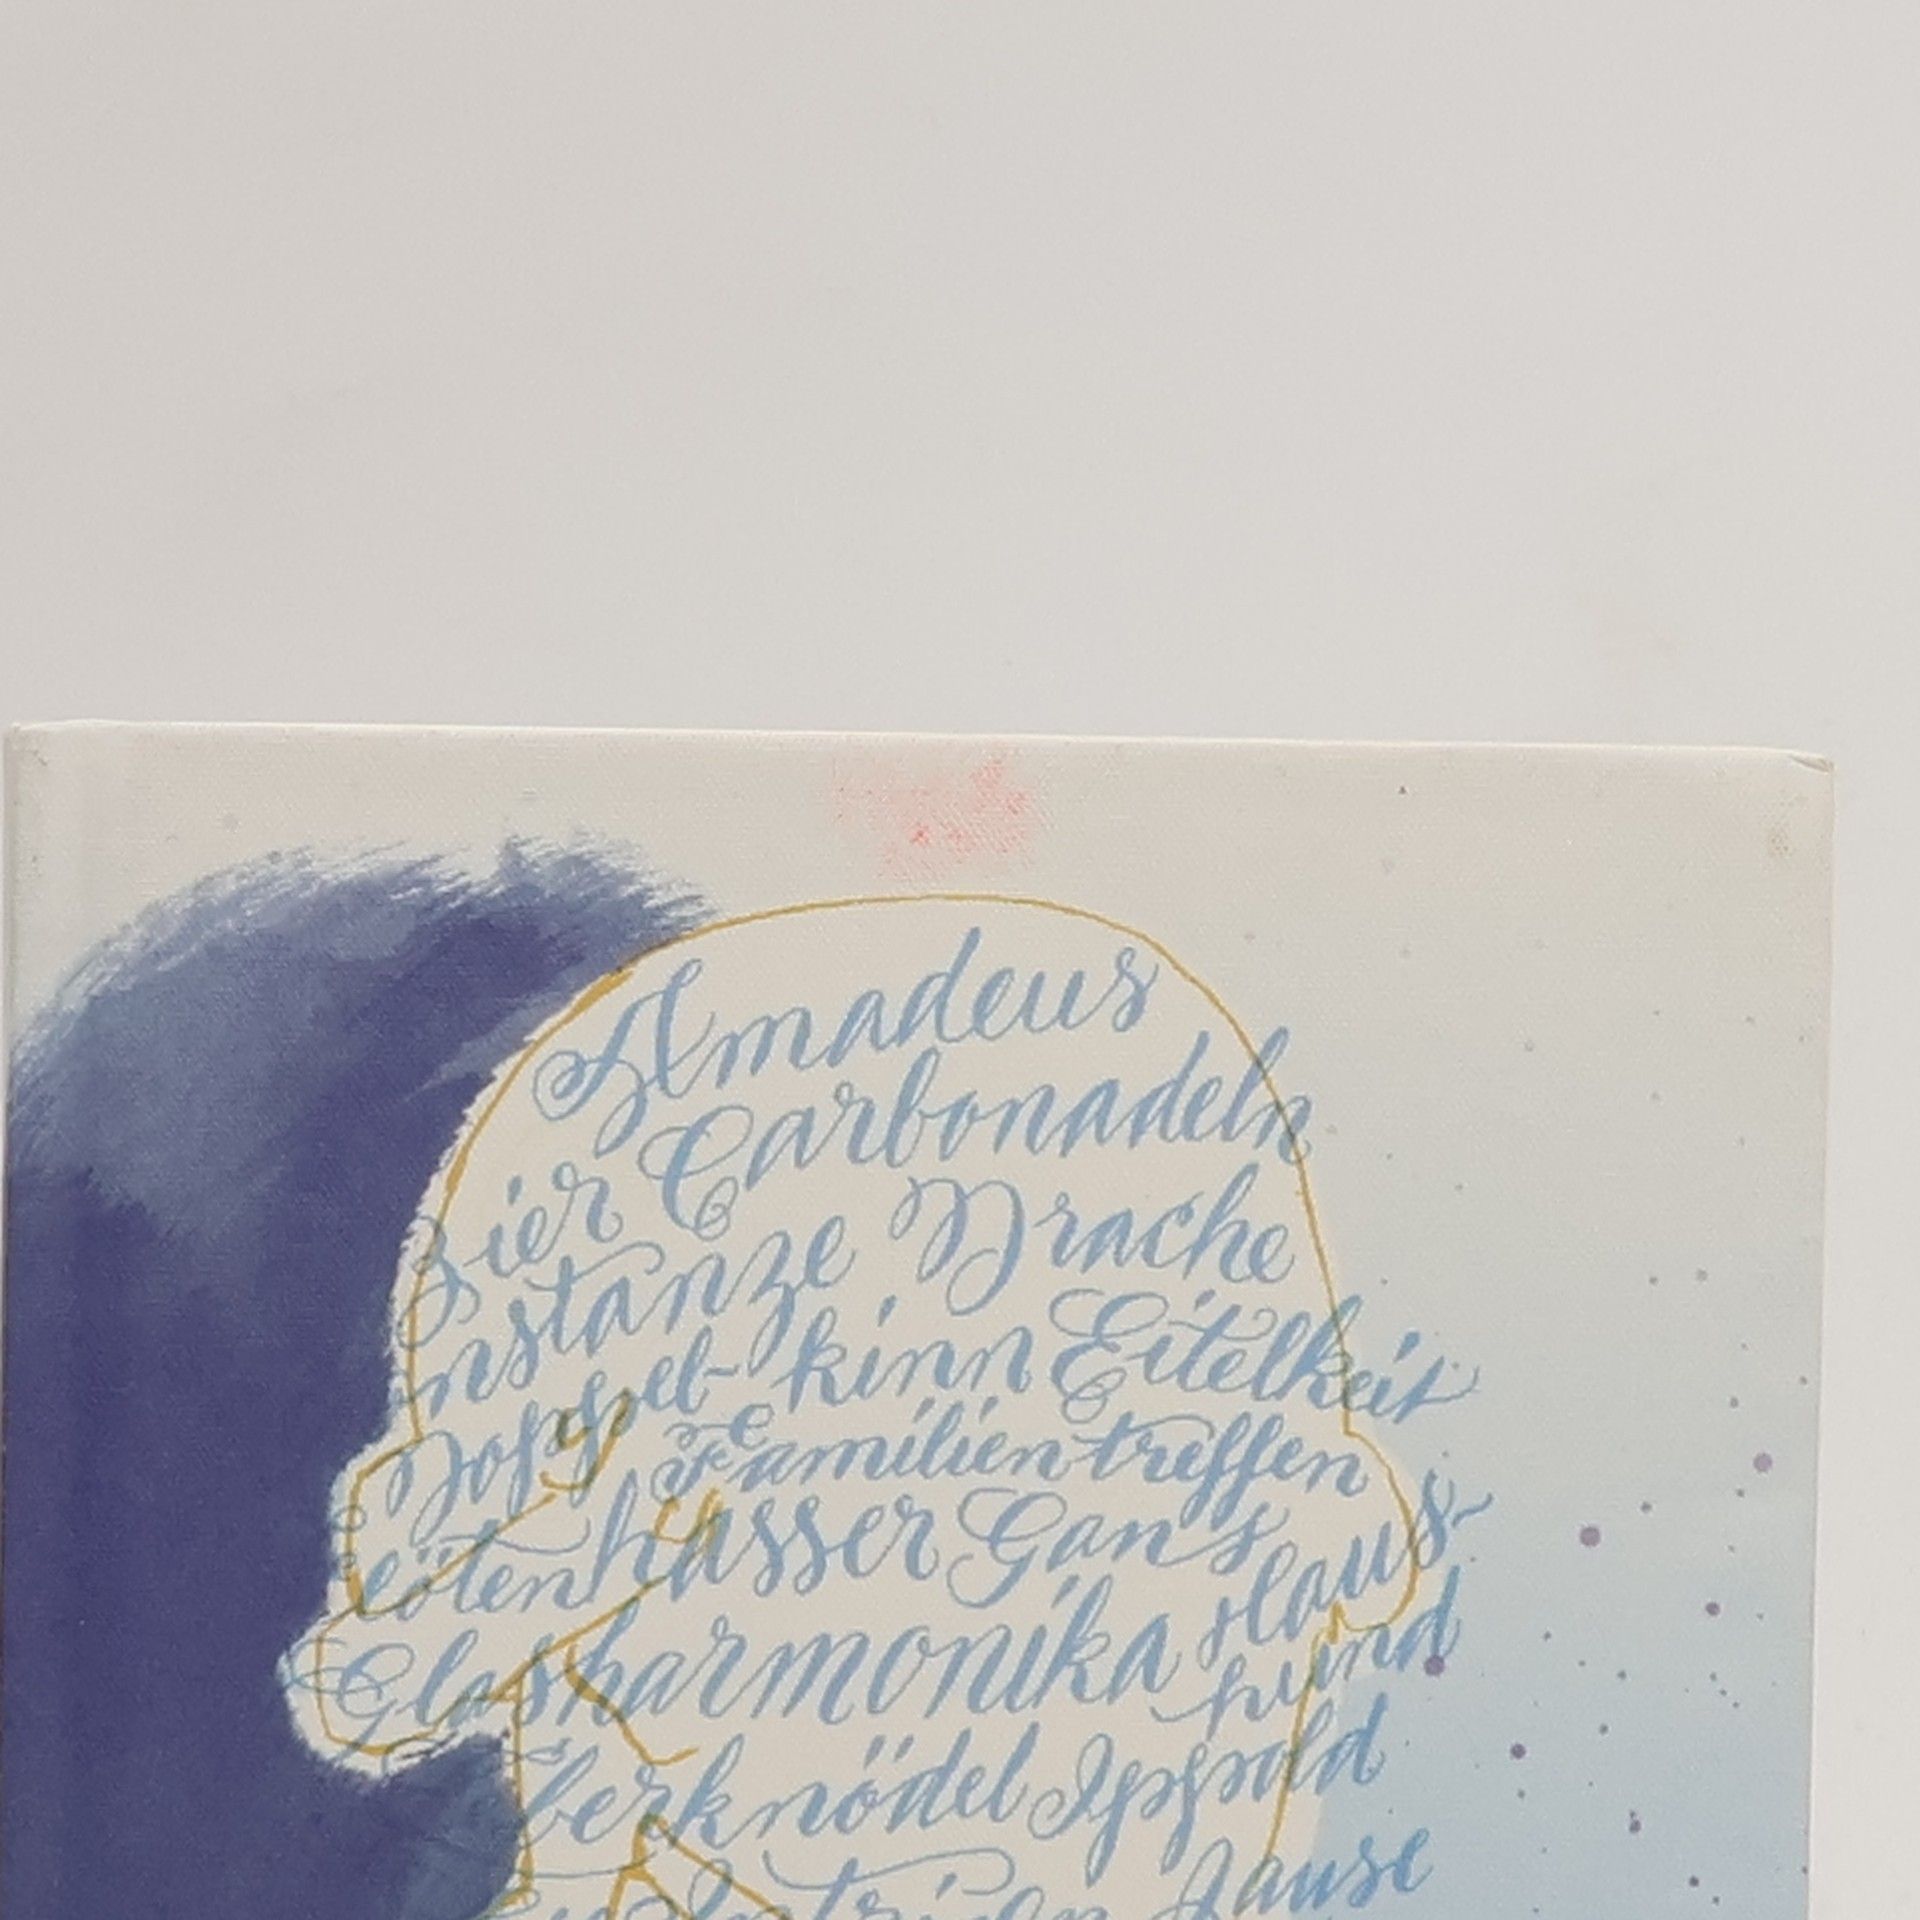 Amadeus
Carbonadeln
zier
nstanze Drache
Doppel- kinn Eitelkeit
Familientreffen
lötenhasser Gans Haus-
Glasharmonika hund
berknödel Ippold
Jause